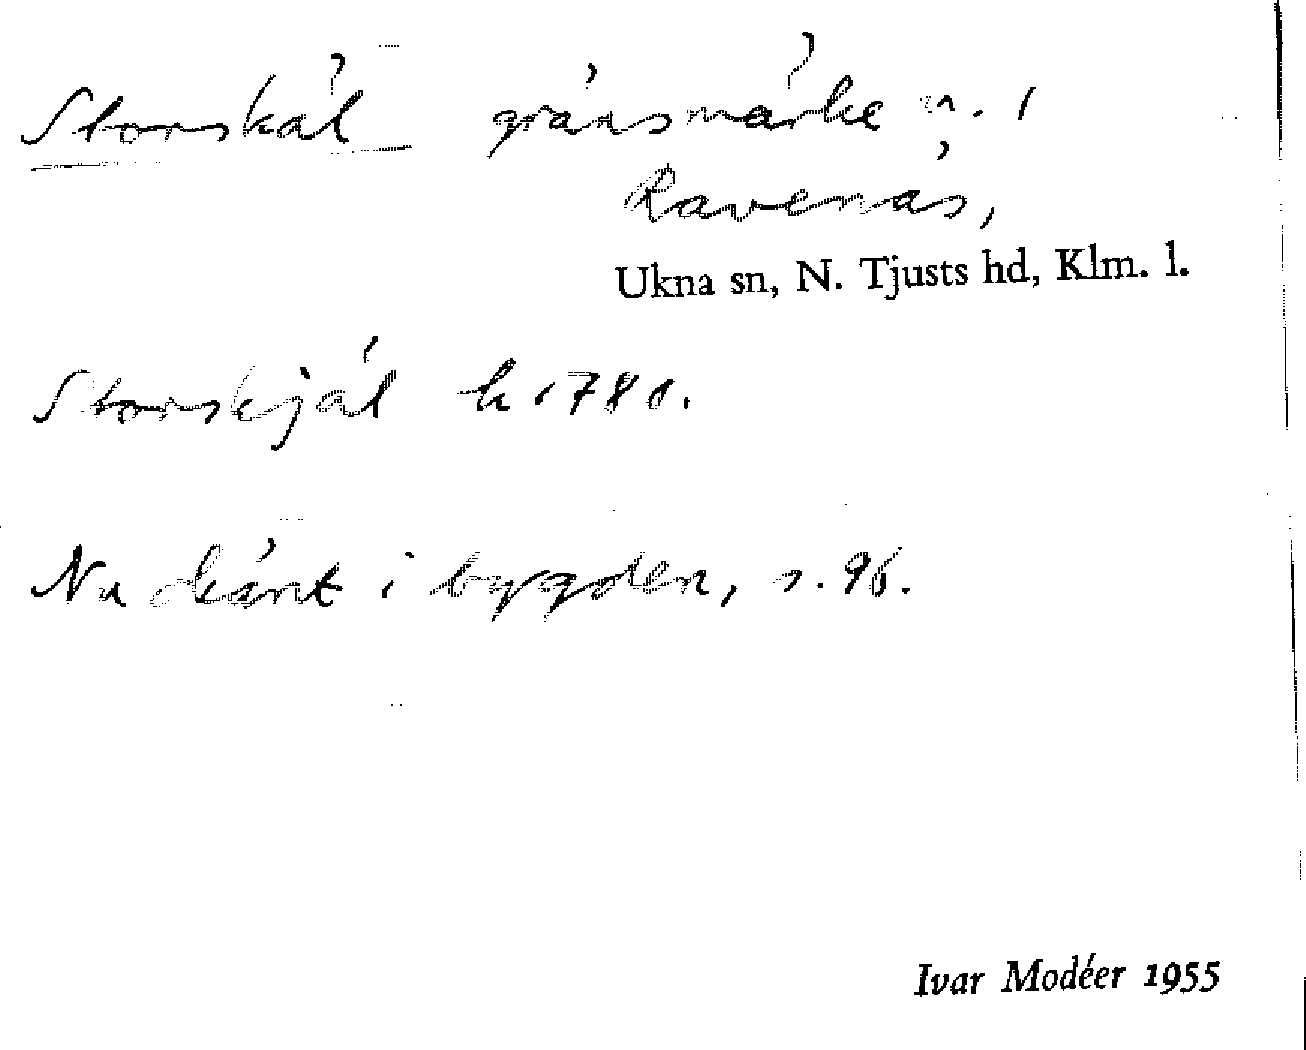 Storskäl gränsmärke n. 1
Ravenäs,
Ukna sn, N. Tjusts hd, Klm. l.
Storskjäl k 1780.
Nu okänt i bygden, s. 96.
Ivar Modéer 1955